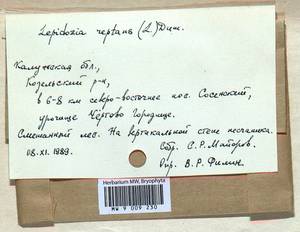 Lepidozia reptans (L.) Dum.
Калужская обл.,
Козельский р-н,
в 6-8 км северо-восточнее пос. Сосенский,
урочище Чертово Городище.
Смешанный лес. На вертикальной стене песчаника.
08.XI.1989. Сбр. С.Р. Майоров.
Опр. В.Р. Филин.
Herbarium MW, Bryophyta
MW 9 009 230